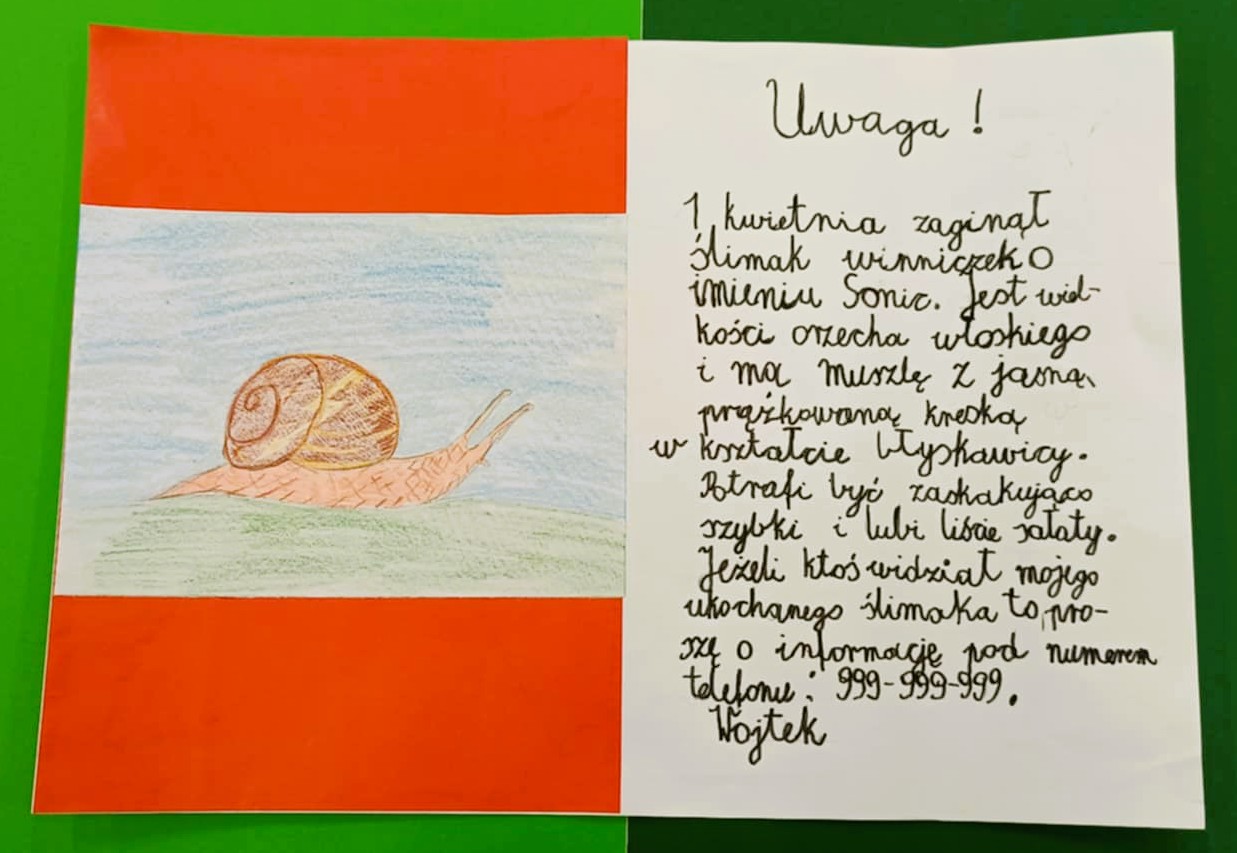 Uwaga !
1 kwietnia zaginął
ślimak winniczek o
imieniu Sonic. Jest wiel-
kości orzecha włoskiego
i ma muszlę z jasną,
prążkowaną kreską
w kształcie błyskawicy.
Potrafi być zaskakująco
szybki i lubi liście sałaty.
Jeżeli ktoś widział mojego
ukochanego ślimaka to, pro-
szę o informację pod numerem
telefonu: 999-999-999.
Wojtek